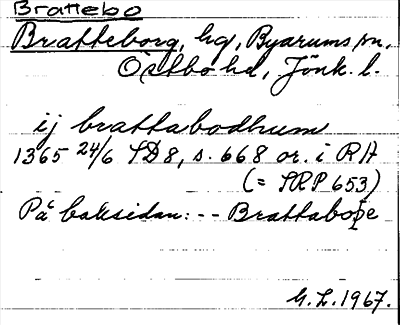 Brattebo
Bratteborg, hg, Byarums sn,
Östbo hd, Jönk. l.
ij brattabodhum
1365 24/6 SD 8, s. 668 or. i RA
(= SRP 653)
På baksidan: -- Brattaboþe
G.L. 1967.